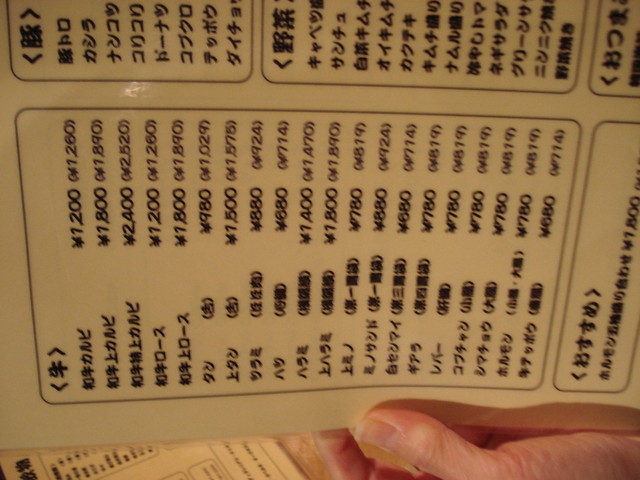 〈豚〉
豚トロ
カシラ
ナンコツ
コリコリ
ドーナツ
コブクロ
テッポウ
ダイチョウ
〈野菜
キャベツ盛
サンチュ
白菜キムチ
オイキムチ
カクテキ
キムチ盛り
ナムル盛り
冷やしトマ
ネギサラダ
グリーンサ
ニンニク焼き
野菜焼き
〈おつま
〈牛〉
和牛カルビ ¥1,200 (¥1,260)
和牛上カルビ ¥1,800 (¥1,890)
和牛特上カルビ ¥2,400 (¥2,520)
和牛ロース ¥1,200 (¥1,260)
和牛上ロース ¥1,800 (¥1,890)
タン (舌) ¥980 (¥1,029)
上タン (舌) ¥1,500 (¥1,575)
ツラミ ¥880 (¥924)
ハツ (心臓) ¥680 (¥714)
ハラミ (横隔膜) ¥1,400 (¥1,470)
上ハラミ (横隔膜) ¥1,800 (¥1,890)
上ミノ (第一胃袋) ¥780 (¥819)
ミノサンド (第一胃袋) ¥880 (¥924)
白センマイ (第三胃袋) ¥680 (¥714)
ギアラ (第四胃袋) ¥780 (¥819)
レバー (肝臓) ¥780 (¥819)
コプチャン (小腸) ¥780 (¥819)
シマチョウ (大腸) ¥780 (¥819)
ホルモン (小腸・大腸) ¥780 (¥819)
牛テッポウ (直腸) ¥680 (¥714)
〈おすすめ〉
ホルモン五種盛り合わせ ¥1,800